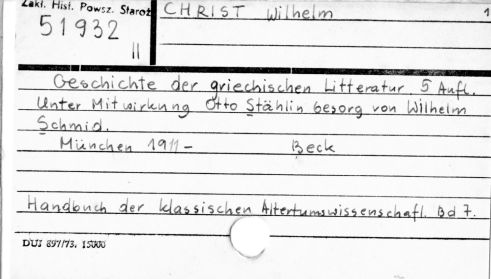 Zakł. Hist. Powsz. Staroż
CHRIST Wilhelm 1
51932
II
Geschichte der griechischen Litteratur. 5 Aufl.
Unter Mitwirkung Otto Stählin besorg von Wilhelm
Schmid.
München 1911- Beck
Handbuch der klassischen Altertumswissenschaft. Bd 7.
DUJ 897/73. 15000